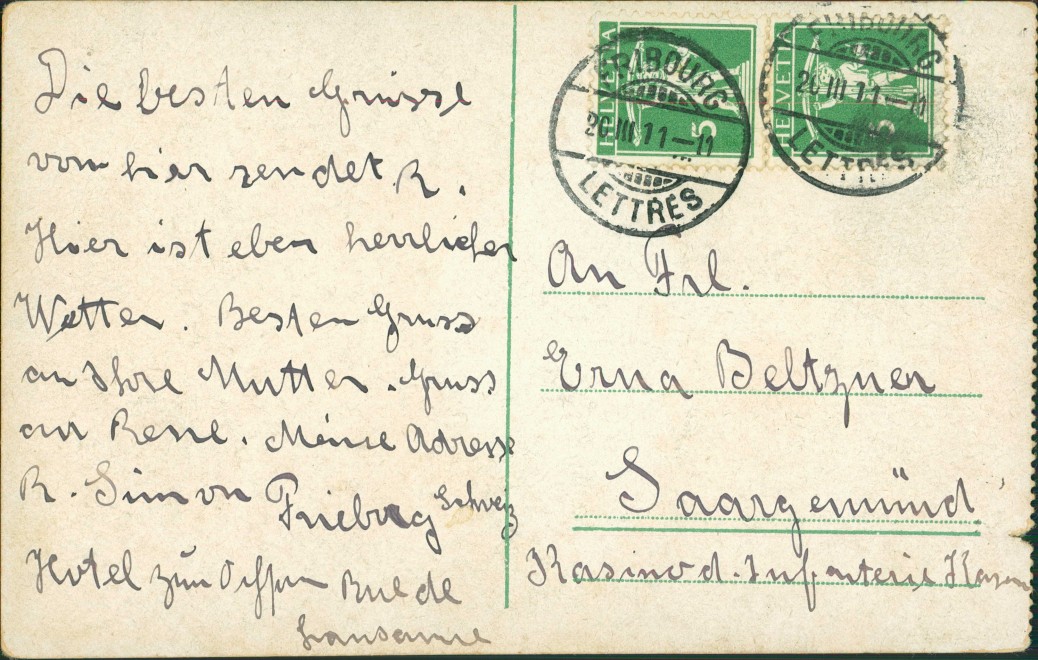 Die besten Grüsse
von hier sendet R.
Hier ist eben herrlicher
Wetter. Besten Gruss
an Ihre Mutter. Gruss
an Resel. Meine Adresse
R. Simon Frieburg Schweiz
Hotel zum
Lausanne
HELVETIA
5
FRIBOURG
20 III 11-11
LETTRES
HELVETIA
5
FRIBOURG
20 III 11-11
LETTRES
An Frl.
Erna Beltzner
Saargemünd
Kasino d. Infanterie